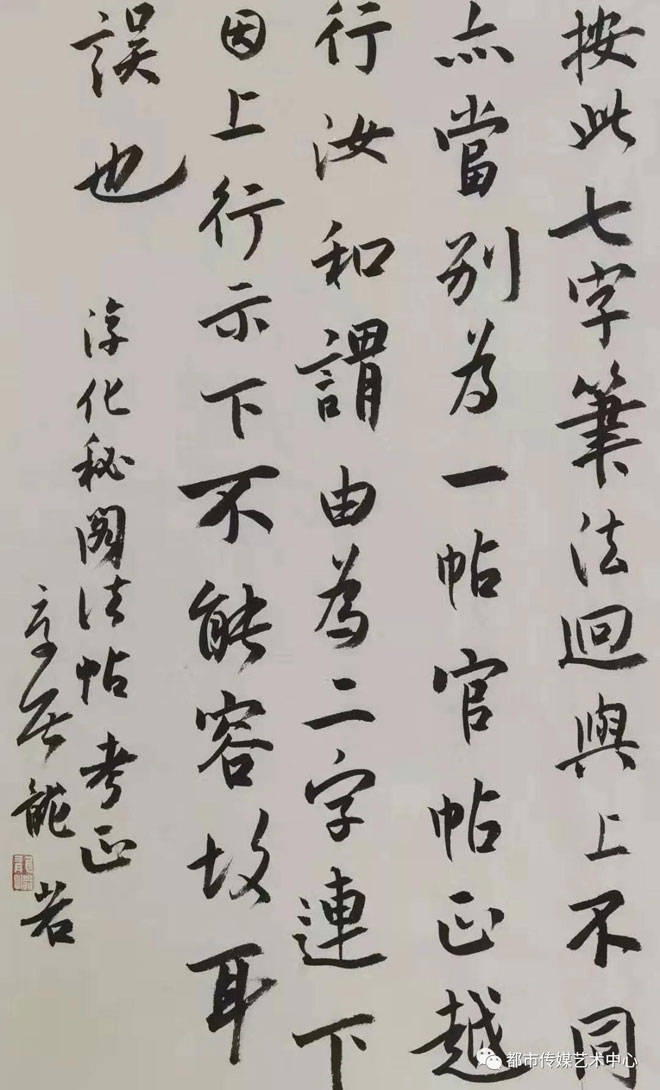 按此七字筆法迥與上不同
亦當别為一帖官帖正越
行汝和謂由為二字連下
因上行示下不能容故耳
誤也
淳化秘閣法帖考正
都市传媒艺术中心